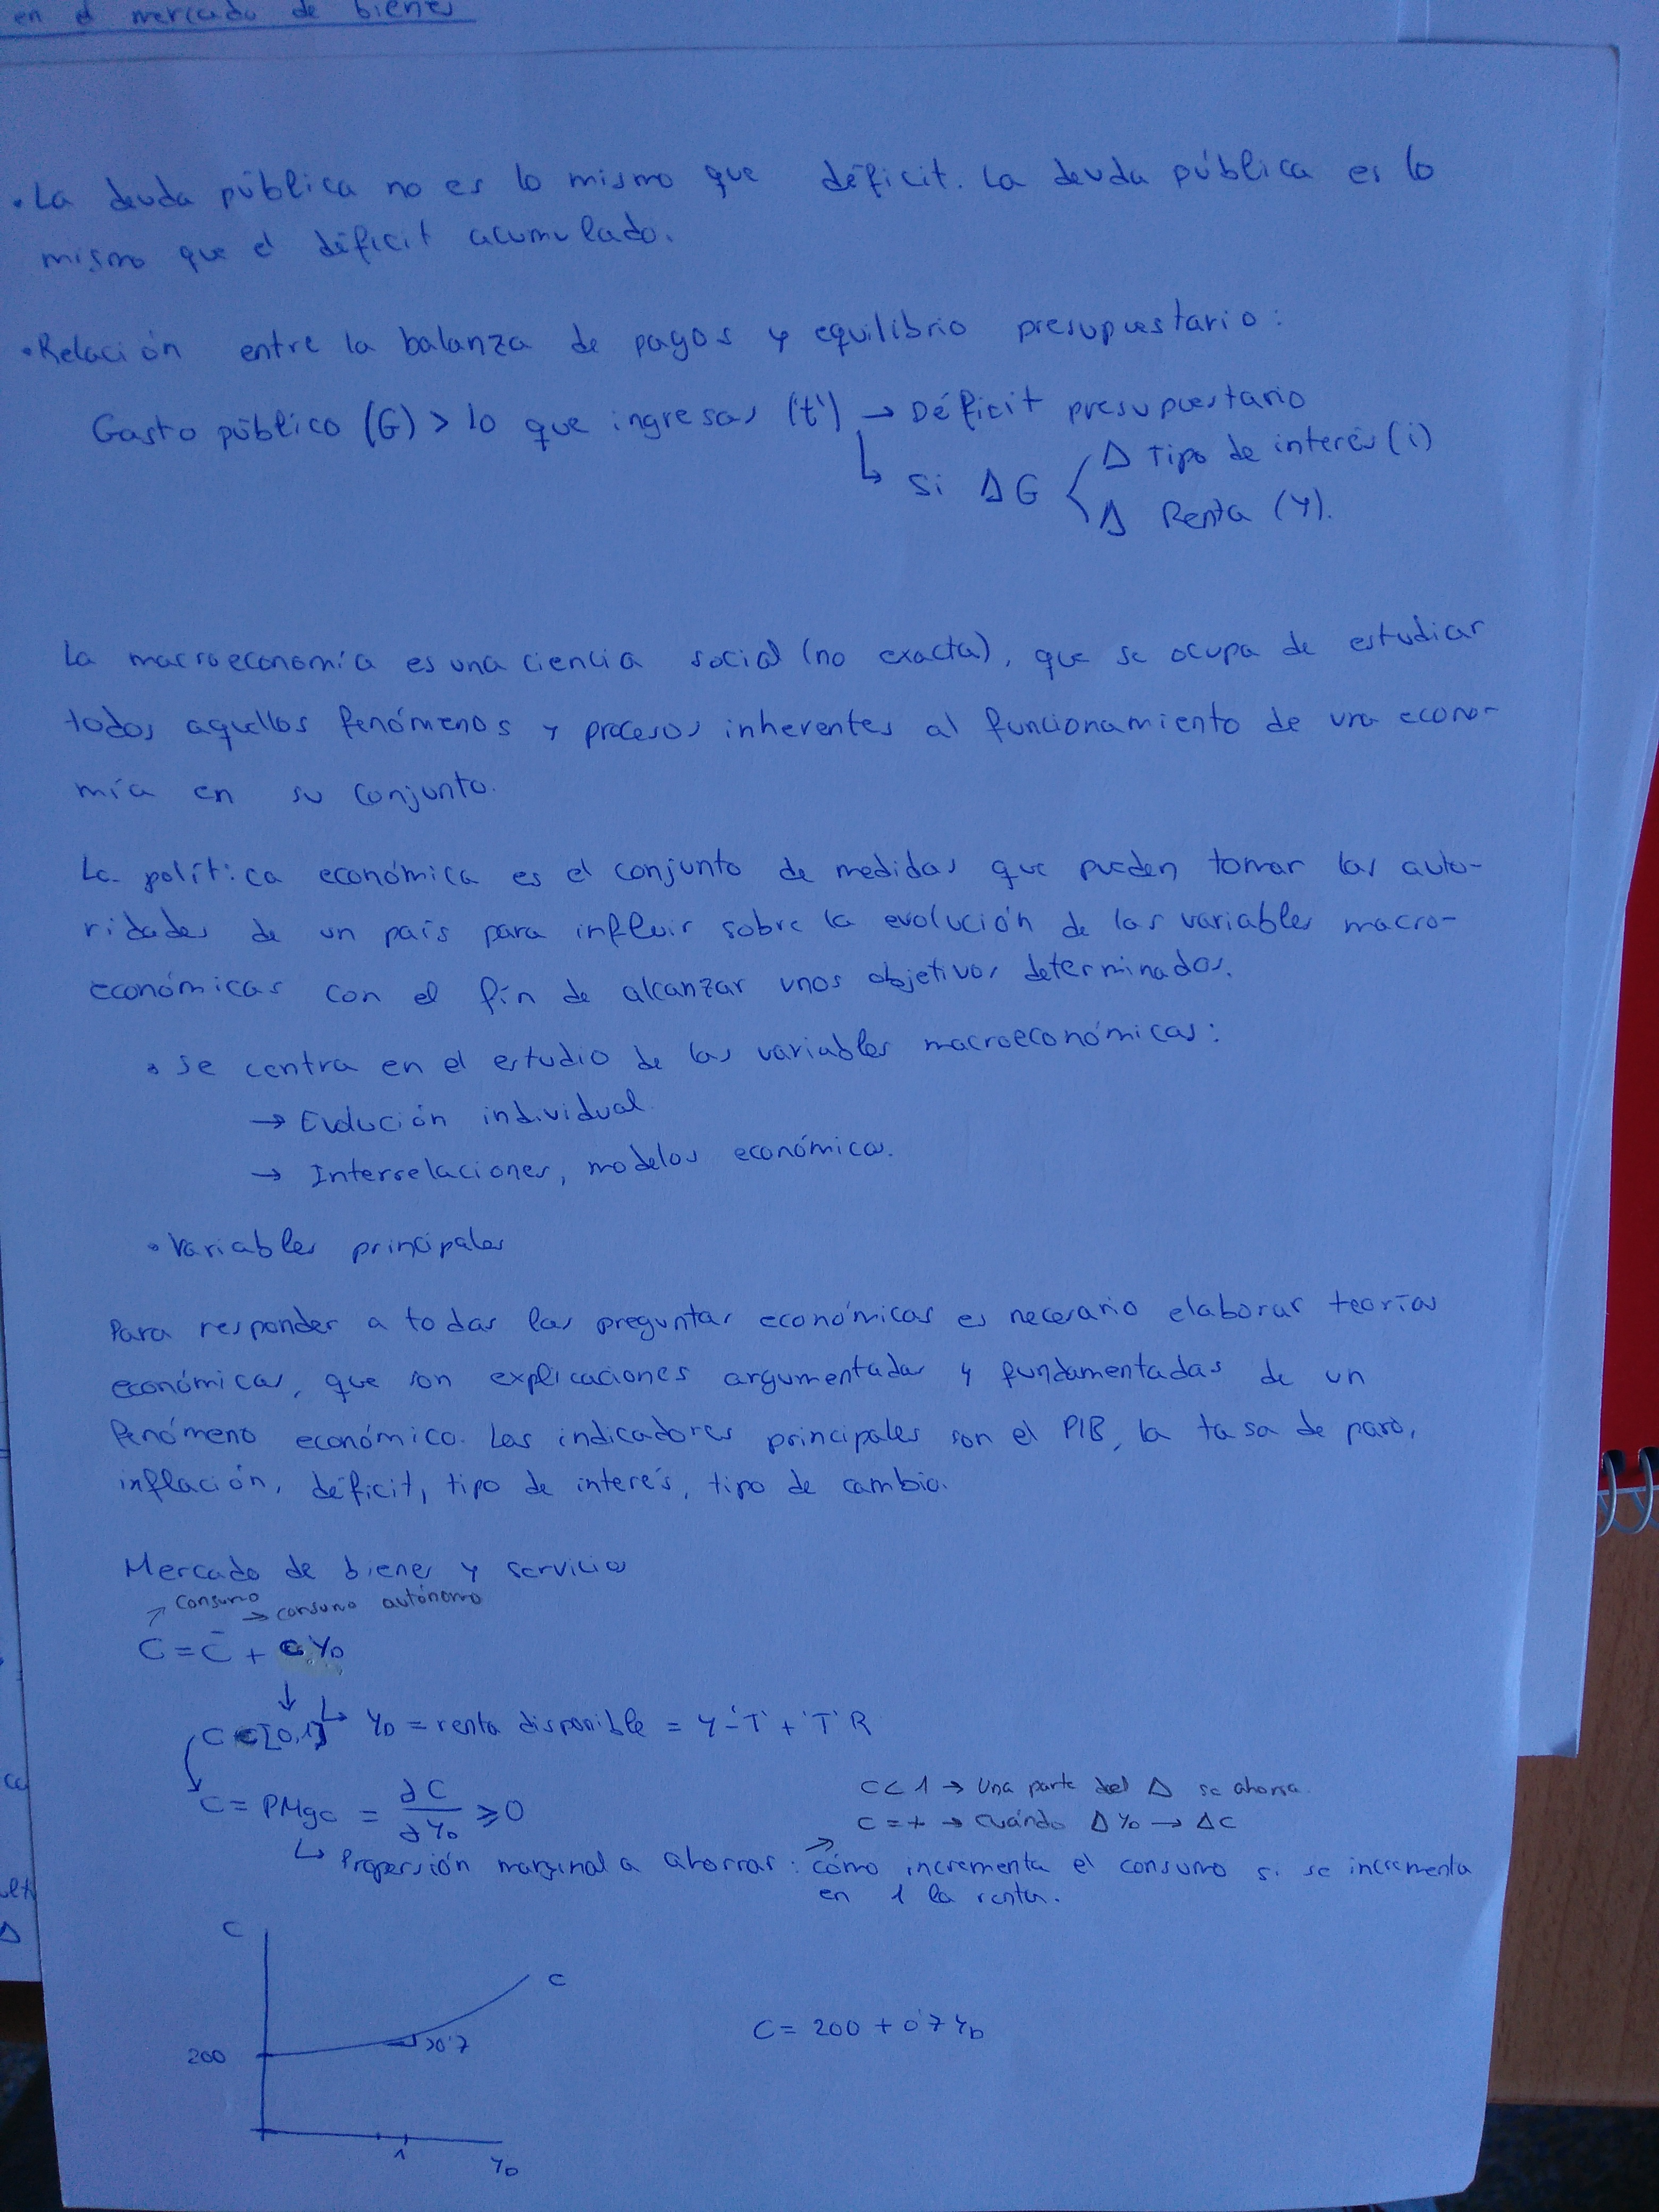 en el mercado de bienes
• La deuda pública no es lo mismo que déficit. La deuda pública es lo
mismo que el déficit acumulado.
• Relación entre la balanza de pagos y equilibrio presupuestario:
Gasto público (G) > lo que ingresas (t) → Déficit presupuestario
↳ Si ΔG < Δ Tipo de interés (i)
Δ Renta (Y).
La macroeconomía es una ciencia social (no exacta), que se ocupa de estudiar
todos aquellos fenómenos y procesos inherentes al funcionamiento de una econo-
mía en su conjunto.
La política económica es el conjunto de medidas que pueden tomar las auto-
ridades de un país para influir sobre la evolución de las variables macro-
económicas con el fin de alcanzar unos objetivos determinados.
• Se centra en el estudio de las variables macroeconómicas:
→ Evolución individual
→ Interrelaciones, modelos económicos.
• Variables principales
Para responder a todas las preguntas económicas es necesario elaborar teorías
económicas, que son explicaciones argumentadas y fundamentadas de un
fenómeno económico. Los indicadores principales son el PIB, la tasa de paro,
inflación, déficit, tipo de interés, tipo de cambio.
Mercado de bienes y servicios
↗ Consumo
→ consumo autónomo
C = C̄ + c YD
↓
c ∈ [0,1] ↳ YD = renta disponible = Y - T + TR
c = PMgc = ∂C/∂YD ≥ 0
c < 1 → Una parte del Δ se ahorra.
c = + → Cuándo Δ YD → ΔC
↳ Propensión marginal a ahorrar: cómo incrementa el consumo si se incrementa
en 1 la renta.
C
C
0'7
200
C = 200 + 0'7 YD
1
YD